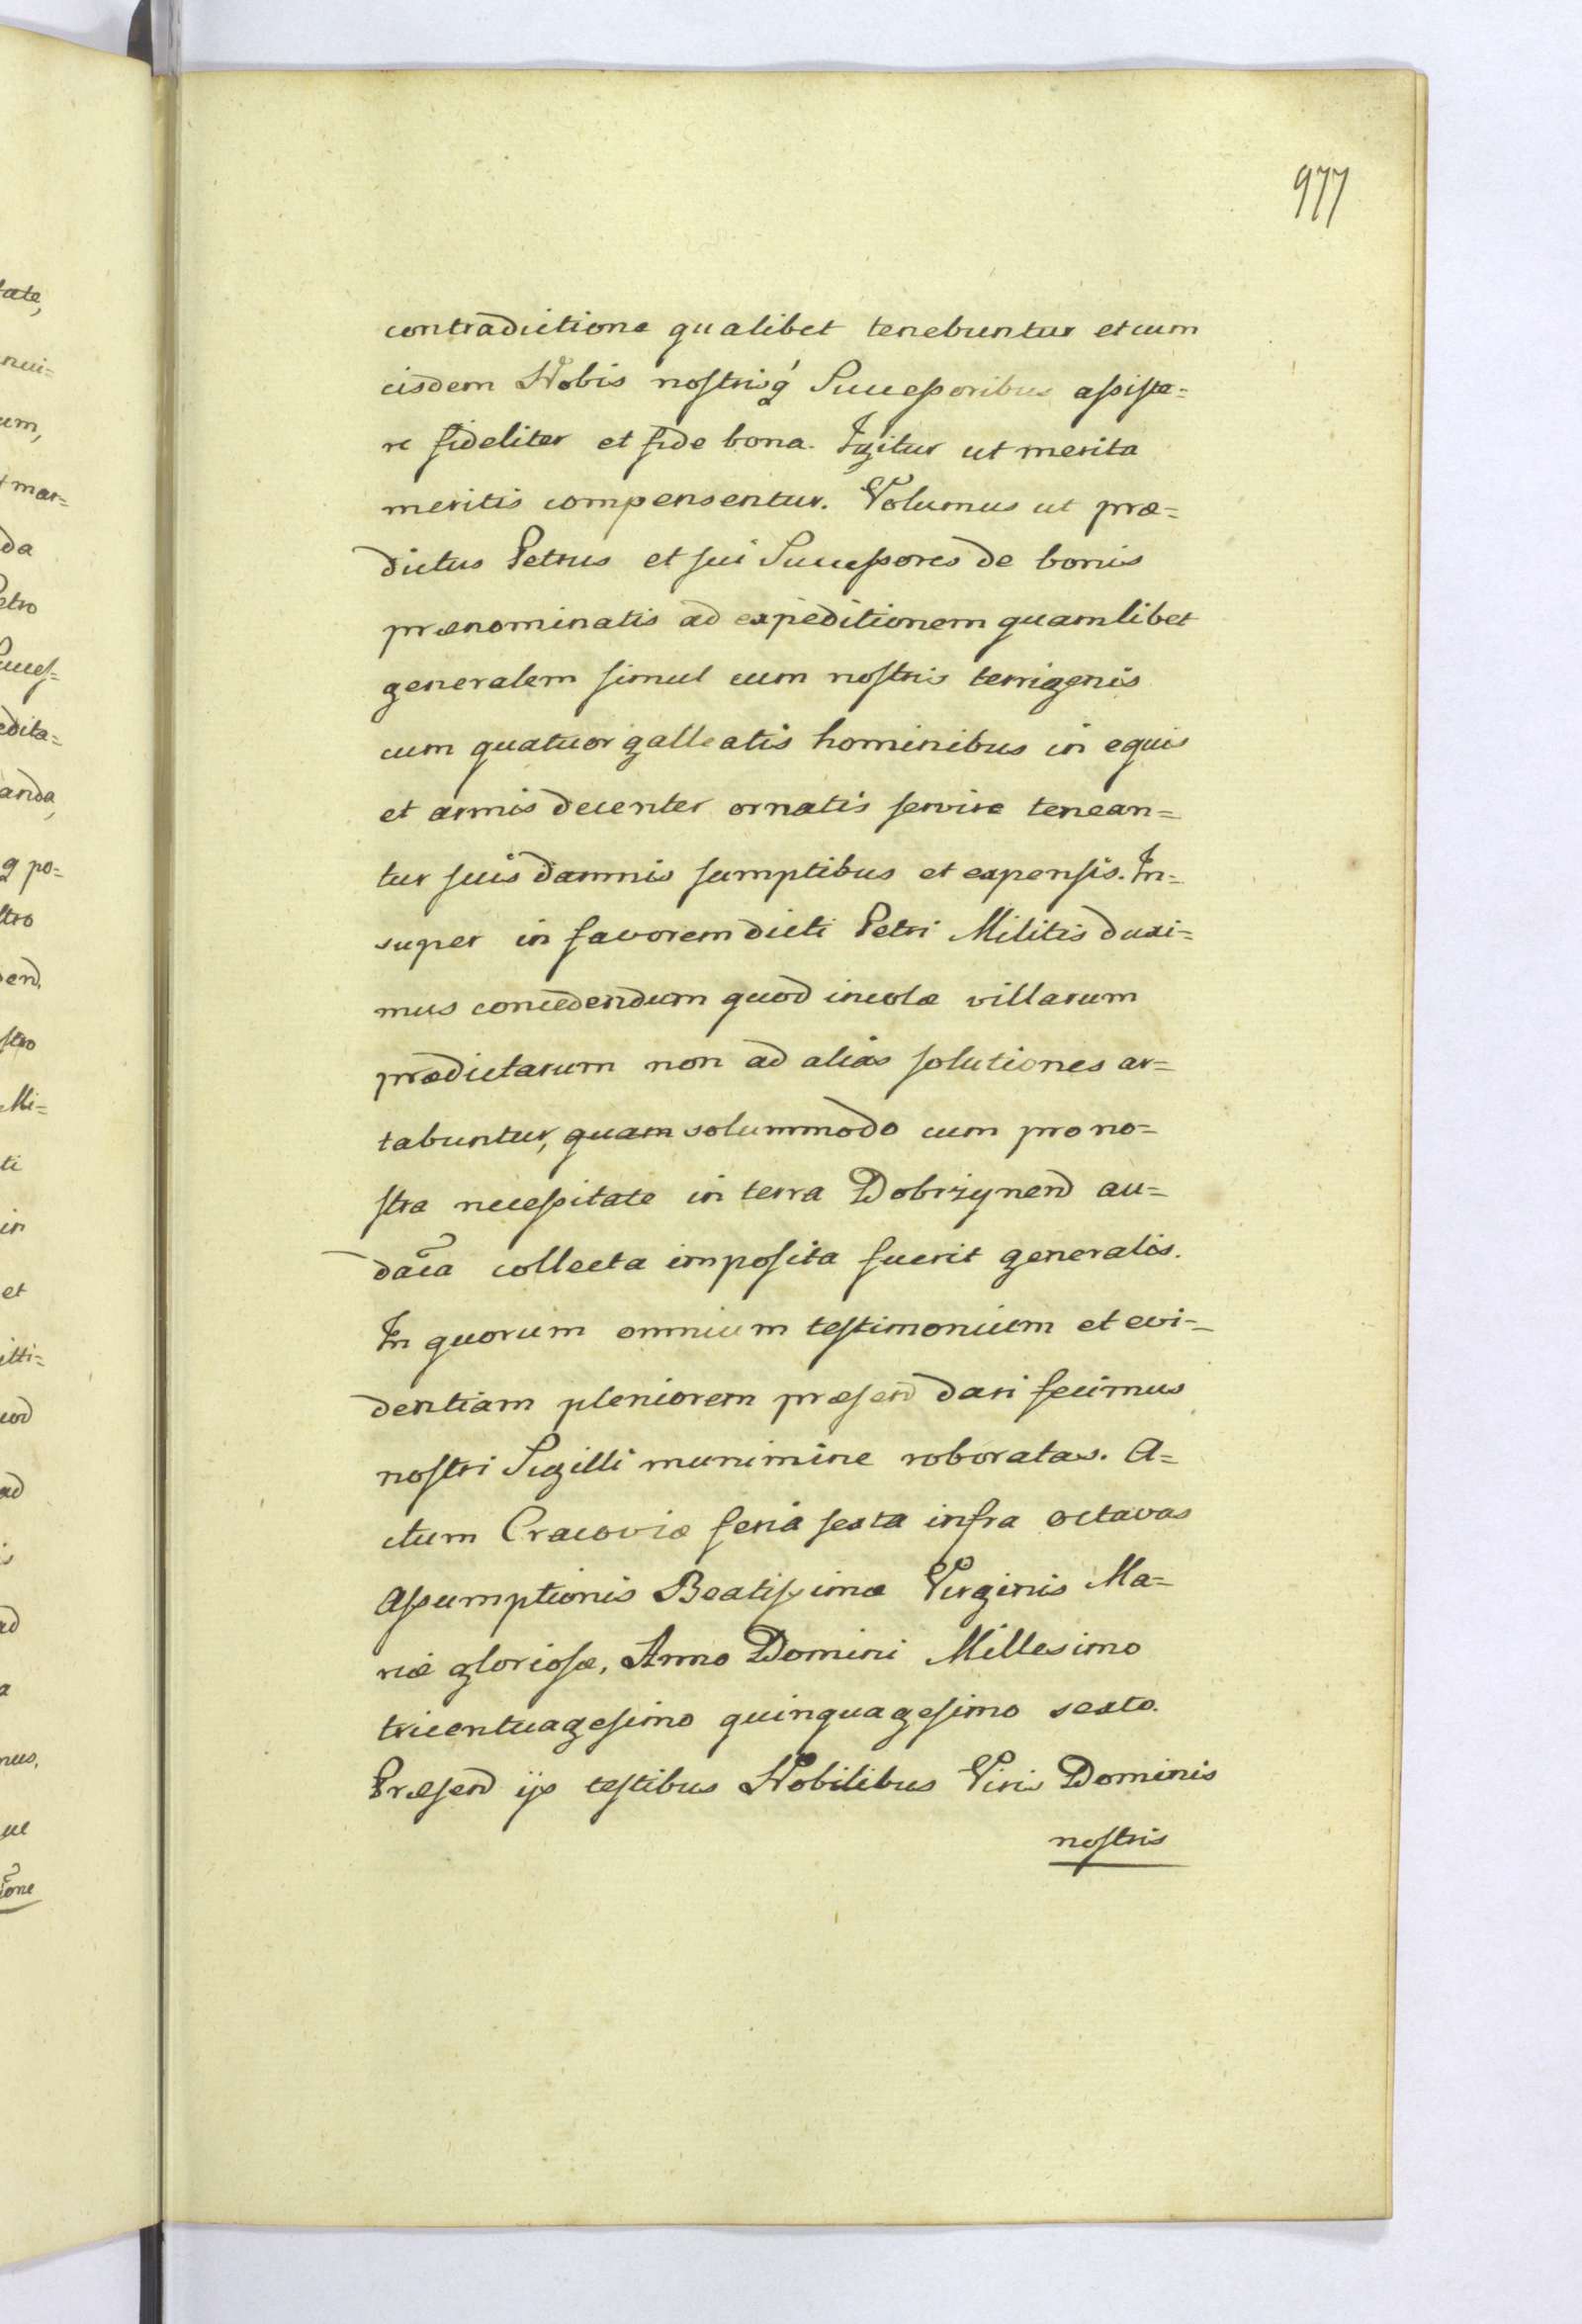 977
contradictione qualibet tenebuntur et cum
eisdem Nobis nostrisq́ Successoribus assiste=
re fideliter et fide bona. Igitur ut merita
meritis compensentur. Volumus ut præ=
dictus Petrus et sui Successores de bonis
prænominatis ad expeditionem quamlibet
generalem simul cum nostris terrigenis
cum quatuor galleatis hominibus in equis
et armis decenter ornatis servire tenean=
tur suis damnis sumptibus et expensis. In=
super in favorem dicti Petri Militis duxi=
mus concedendum quod incolæ villarum
prædictarum non ad alias solutiones ar=
tabuntur, quam solummodo cum pro no=
stra necessitate in terra Dobrzynend au=
daca collecta imposita fuerit generalis.
In quorum omnium testimonium et evi=
dentiam pleniorem præsend dari fecimus
nostri Sigilli munimine roboratas. A=
ctum Cracoviæ feria sexta infra octavas
Assumptionis Beatissimæ Virginis Ma=
riæ gloriosæ, Anno Domini Millesimo
tricentuagesimo quinquagesimo sexto.
Præsend ijs testibus Nobilibus Viris Dominis
nostris
tate,
nui=
um,
mar=
da
etro
Succes=
edita=
anda,
q po=
stro
end,
stro
Mi=
ti
in
et
itti=
uod
ad
is
ad
a
mus,
ue
ione